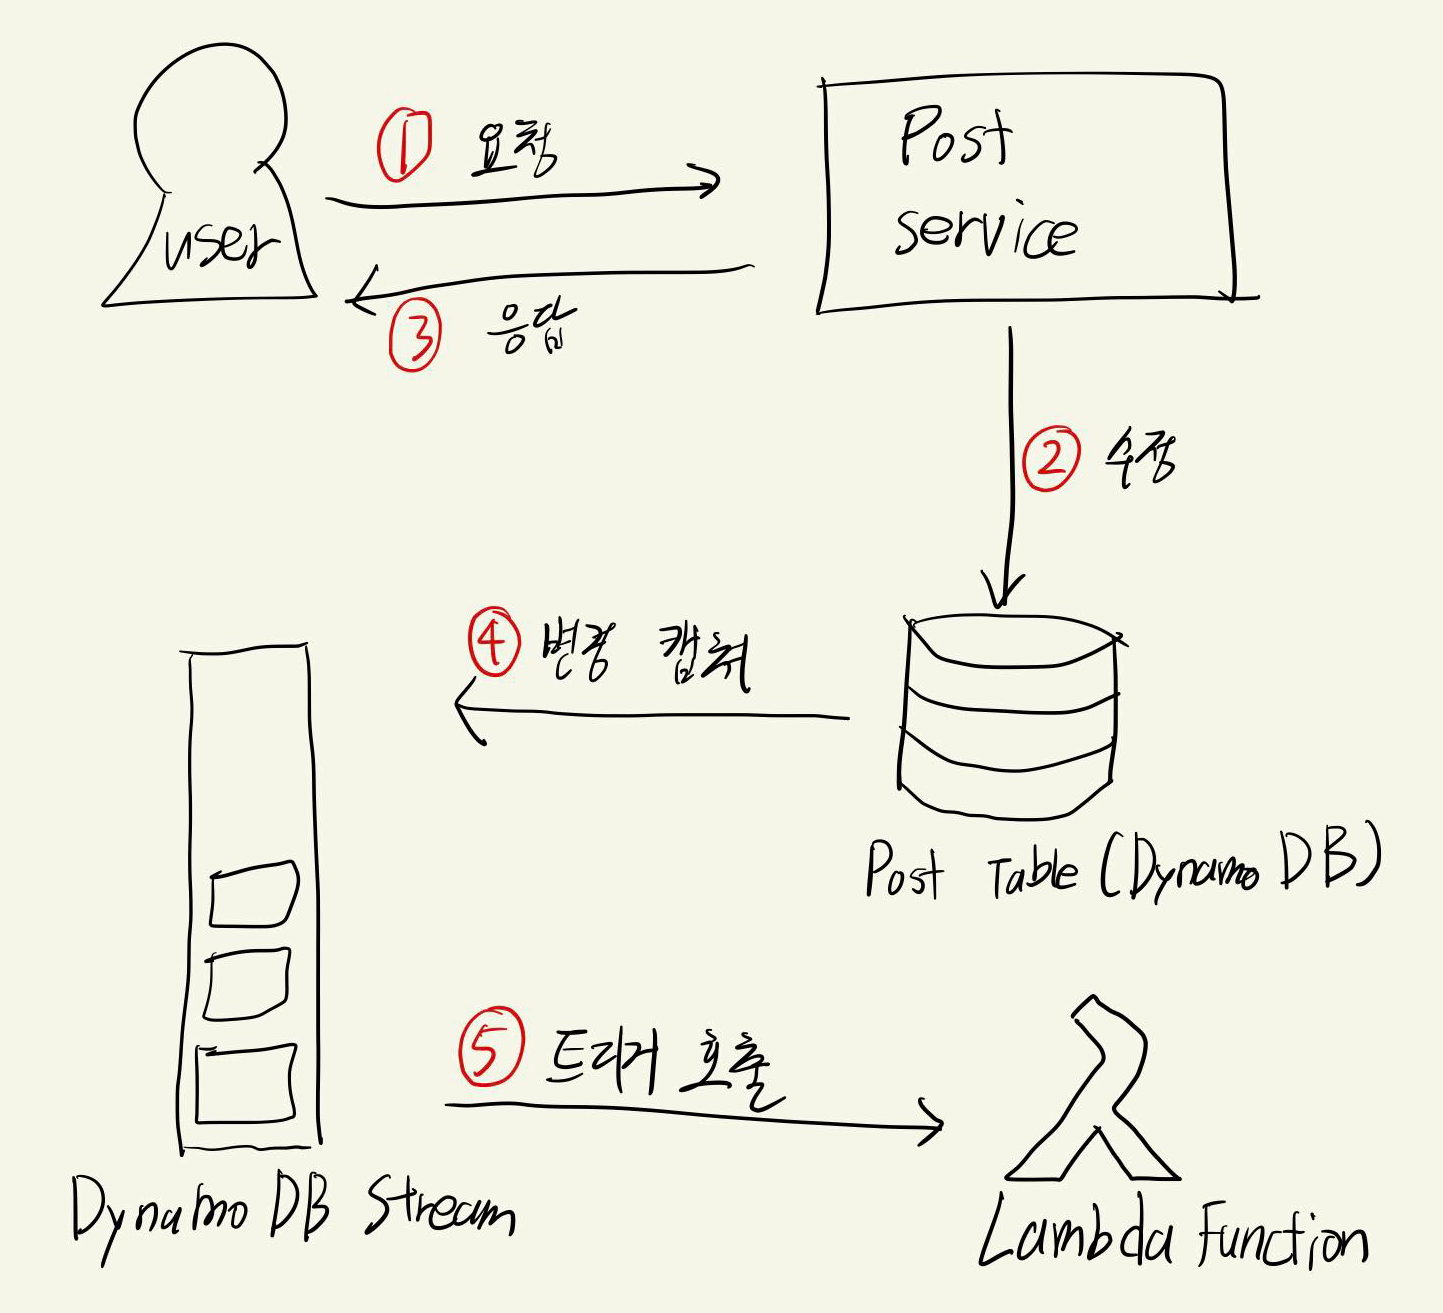 user
① 요청
Post
service
③ 응답
② 수정
④ 변경 캡춰
Post Table (Dynamo DB)
⑤ 트리거 호출
Dynamo DB Stream
Lambda Function